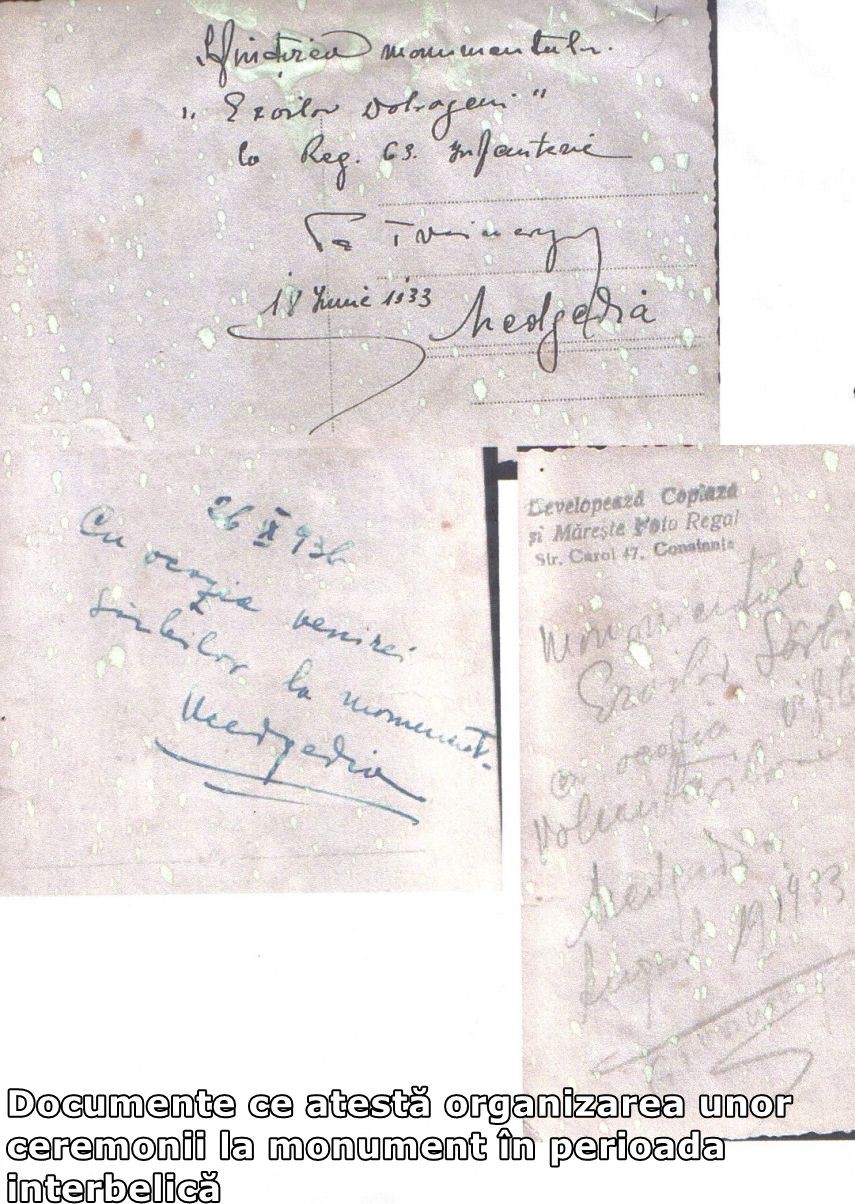 Sfințirea monumentului
„Eroilor Dobrogeni"
la Reg. 63. Infanterie
18 Iunie 1933
Medgedia
26 X 936
Cu ocazia venirei
Sârbilor la monument.
Medgedia
Developează Copiază
și Mărește Foto Regal
Str. Carol 47, Constanța
Monumentul
Eroilor Sârbi
cu ocazia
Medgedia
1933
Documente ce atestă organizarea unor
ceremonii la monument în perioada
interbelică